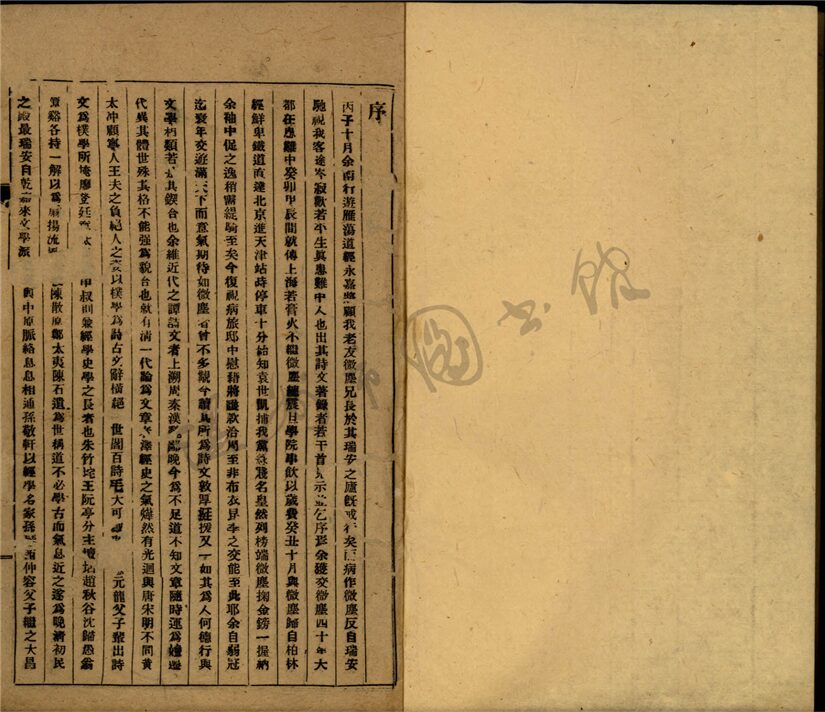 序
丙子十月余南行遊雁蕩道經永嘉將顧我老友微塵兄長於其瑞安之廬旣戒行矣而病作微塵反自瑞安
馳視我客途岑寂歡若平生眞患難中人也出其詩文著錄者若干首示並乞序焉余獲交微塵四十年大
都在患難中癸卯甲辰間就傅上海若膏火不繼微塵讀震旦學院事飲以歲費癸丑十月與微塵歸自柏林
經鮮卑鐵道直達北京進天津站時停車十分始知袁世凱捕我黨殊殘名皇然列榜端微塵掬金鎊一握納
余袖中促之逸稍需緹騎至矣今復視病旅邸中慰藉將護款洽周至非布衣昆季之交能至此耶余自弱冠
迄衰年交遊滿天下而意氣期待如微塵者曾不多覯今讀其所爲詩文敦厚挺拔又一如其爲人何德行與
文學相類若其鍥合也余維近代之譚論文者上溯周秦漢晚今爲不足道不知文章隨時運爲嬗遞
代異其體世殊其格不能強爲貌合也就有清一代論爲文章澤經史之氣煒然有光迥與唐宋明不同黃
太冲顧寧人王夫之負絕人之姿以樸學爲詩古文辭橫絕世閻百詩毛大可元龍父子輩出詩
文爲樸學所掩廖登廷甲叔則兼經學史學之長者也朱竹垞王阮亭分主壇坫趙秋谷沈歸愚翁
覃谿各持一解以爲揚流陳散原鄭太夷陳石遺爲世稱道不必學古而氣息近之遂爲晚清初民
之最瑞安自乾嘉來文學派與中原脈絡息息相通孫敬軒以經學名家孫仲容父子繼之大昌
圖書館